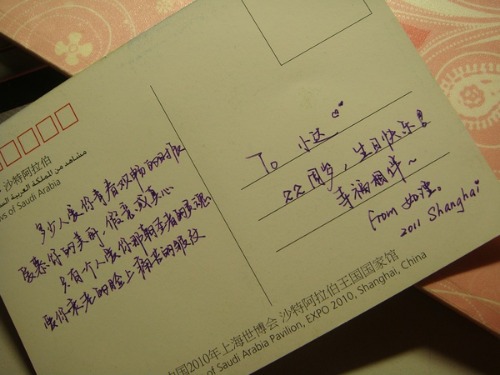 沙特阿拉伯
مشاهد من المملكة العربية
of Saudi Arabia
多少人爱你青春欢畅的时辰
爱慕你的美丽,假意或真心
只有个人爱你那朝圣者的灵魂
爱你衰老的脸上痛苦的皱纹
To 小达
22周岁,生日快乐!
幸福相伴~
from
2011 Shanghai
中国2010年上海世博会 沙特阿拉伯王国国家馆
of Saudi Arabia Pavilion, EXPO 2010, Shanghai, China